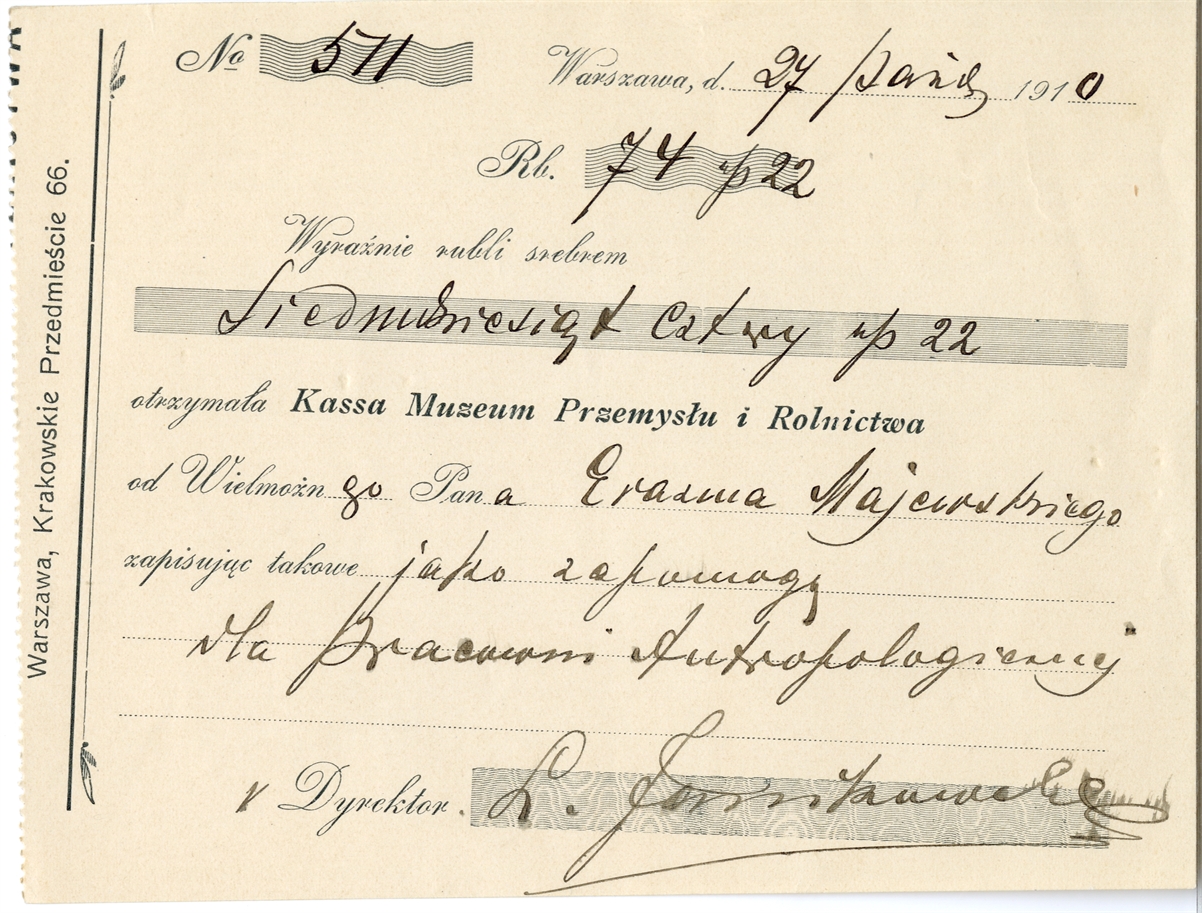 No 511 Warszawa, d. 27 Paźdź 1910
Rb. 74 kp 22
Wyraźnie rubli srebrem
Siedmdziesiąt cztery kp 22
otrzymała Kassa Muzeum Przemysłu i Rolnictwa
od Wielmożn go Pan a Erazma Majewskiego
zapisując takowe jako zapomogę
dla Pracowni Antropologicznej
Dyrektor. L.
Warszawa, Krakowskie Przedmieście 66.